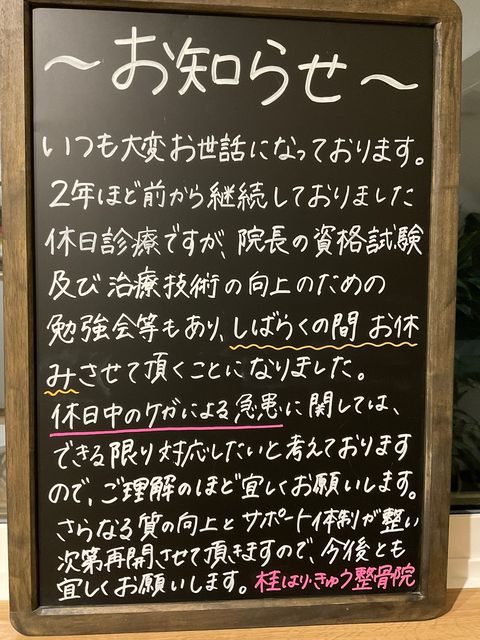 ～お知らせ～
いつも大変お世話になっております。
2年ほど前から継続しておりました
休日診療ですが、院長の資格試験
及び治療技術の向上のための
勉強会等もあり、しばらくの間お休
みさせて頂くことになりました。
休日中のケガによる急患に関しては、
できる限り対応したいと考えております
ので、ご理解のほど宜しくお願いします。
さらなる質の向上とサポート体制が整い
次第再開させて頂きますので、今後とも
宜しくお願いします。桂はり・きゅう整骨院